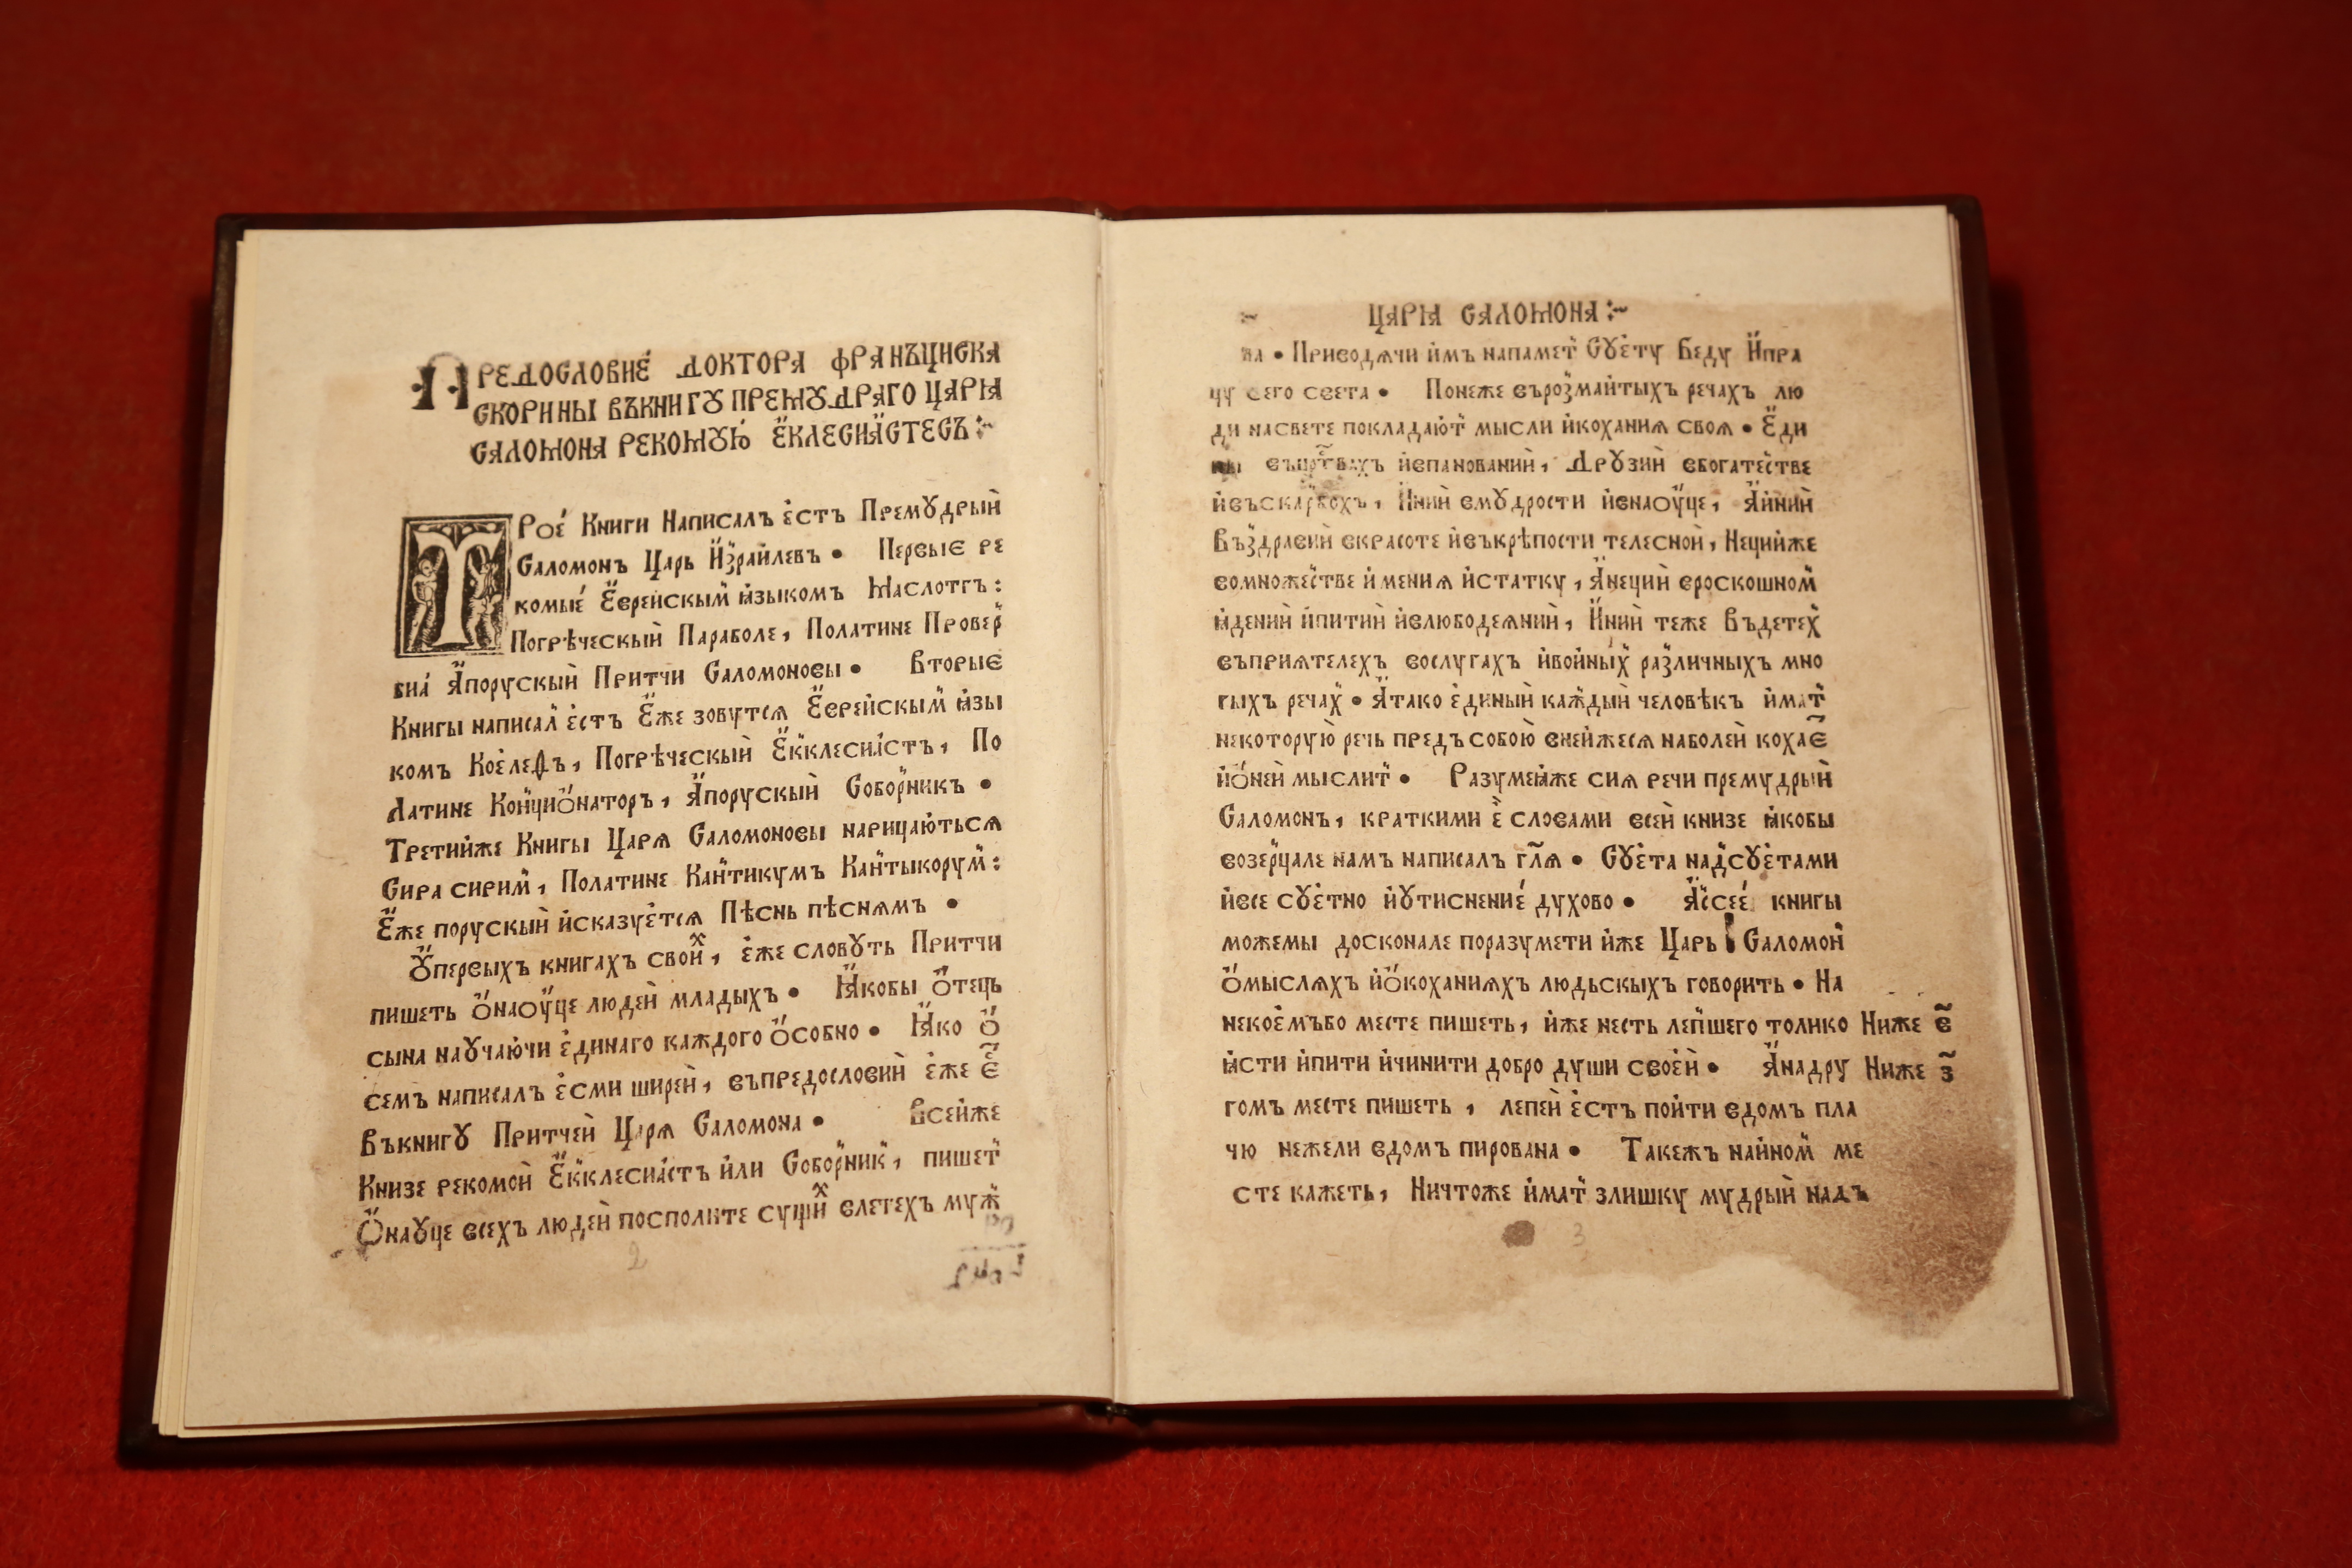 ПРЕДОСЛОВИЕ́ ДОКТОРА ФРАНЪЦИСКА
СКОРИНЫ ВЪКНИГꙋ ПРЕМꙋДРАГО ЦАРꙖ
САЛОМОНА РЕКОМꙋЮ̀ Е҆КЛЕСИꙖСТЕСЪ:~
ТРОЕ́ Книги Написалъ є҆стъ Премꙋдрый
Саломонъ Царь И҆зъраилевъ • Первыє ре
комыє́ Е҆врейскым ꙗ҆зыкомъ Маслотъ:
Погрѣческый Параболе, Полатине Провер
биа́ А҆поруский Притчи Саломоновы • Вторыє
Книгы написал̾ є҆стъ Е҆же зовутсѧ Е҆врейскым̾ ꙗ҆зы
комъ Коє҆леѳъ, Погрѣческый Е҆кклесиꙗ҆стъ, По
Латине Кон̾цио҆наторъ, А҆поруский Собор̾никъ •
Третийже Книгы Царѧ Саломоновы нарицаю҆тьсѧ
Сира сирим̾, Полатине Кан̾тикумъ Кан̾тыкорум̾:
Е҆же порускый и҆сказує҆тсѧ Пѣснь пѣснѧмъ •
Ꙋ҆первыхъ книгахъ свои́ⷯ, є҆же словꙋть Притчи
пишеть о҆наоу҆це людей младыхъ • Ꙗ҆кобы О҆тець
сына наꙋчаю҆чи є҆динаго каждого о҆собно • Ꙗ҆ко о҆
семъ написалъ є҆сми ширей, въпредословий є҆же є҃
Въкнигꙋ Притчей Царѧ Саломона • Всейже
Книзе рекомой Е҆кклесиа҆стъ и҆ли Собор̾ник̾, пишет̾
О҆наꙋце всехъ людей посполите сущиⷯ влетехъ муж̾
2
ЦАРꙖ САЛОМОНА:~
на • Приводѧчи и҆мъ напамет̾ Сꙋє҆ту Беду И҆пра
цу сего света • Понеже въроз̾маитыхъ речахъ лю
ди насвете покладаю҆т̾ мысли и҆коханиѧ своѧ • Е҆ди
ны и҆впанований, Дрꙋзий вбогатес̾тве
и҆въскар̾бохъ, И҆ний вмꙋдрости и҆внаоу҆це, А҆и҆ний
Въз̾дравий вкрасоте и҆въкрѣпости телесной, Нецийже
вомножес̾тве и҆мениѧ и҆статку, А҆неций вроскошном̾
ꙗ҆дений и҆питий и҆влюбодеѧний, И҆ний теже Въдетех̾
въприѧтелехъ вослугах̾ и҆вои́ных̾ раз̾личныхъ мно
гыхъ речах̾ • А҆тако є҆диный каж̾дый человѣкъ и҆мат̾
некоторую̀ речь предъ собою̀ внейжесѧ наболей кохає
и҆о҆ней мыслит̾ • Разумеꙗ҆же сиѧ речи премудрый
Саломонъ, краткими є҃ словами всей книзе ꙗ҆кобы
возер̾цале намъ написалъ гл҃ѧ • Сꙋє҆та над̾сꙋє҆тами
и҆все сꙋє҆тно и҆ꙋтиснениє́ духово • А҆с̾сеє́ книгы
можемы досконале поразумети и҆же Царь Саломон̾
О҆мыслѧхъ и҆о҆коханиѧхъ людьскыхъ говорить • На
некоє҆мъбо месте пишеть, и҆же несть леп̾шего толико Ниже є҃
ꙗ҆сти и҆пити и҆чинити добро души своє҆й • А҆надру Ниже з҃
гомъ месте пишеть, лепей є҆стъ пойти вдомъ пла
чю нежели вдомъ пирована • Такежъ наи҆ном̾ ме
сте кажеть, Ничтоже и҆мат̾ злишку мудрый надъ
3